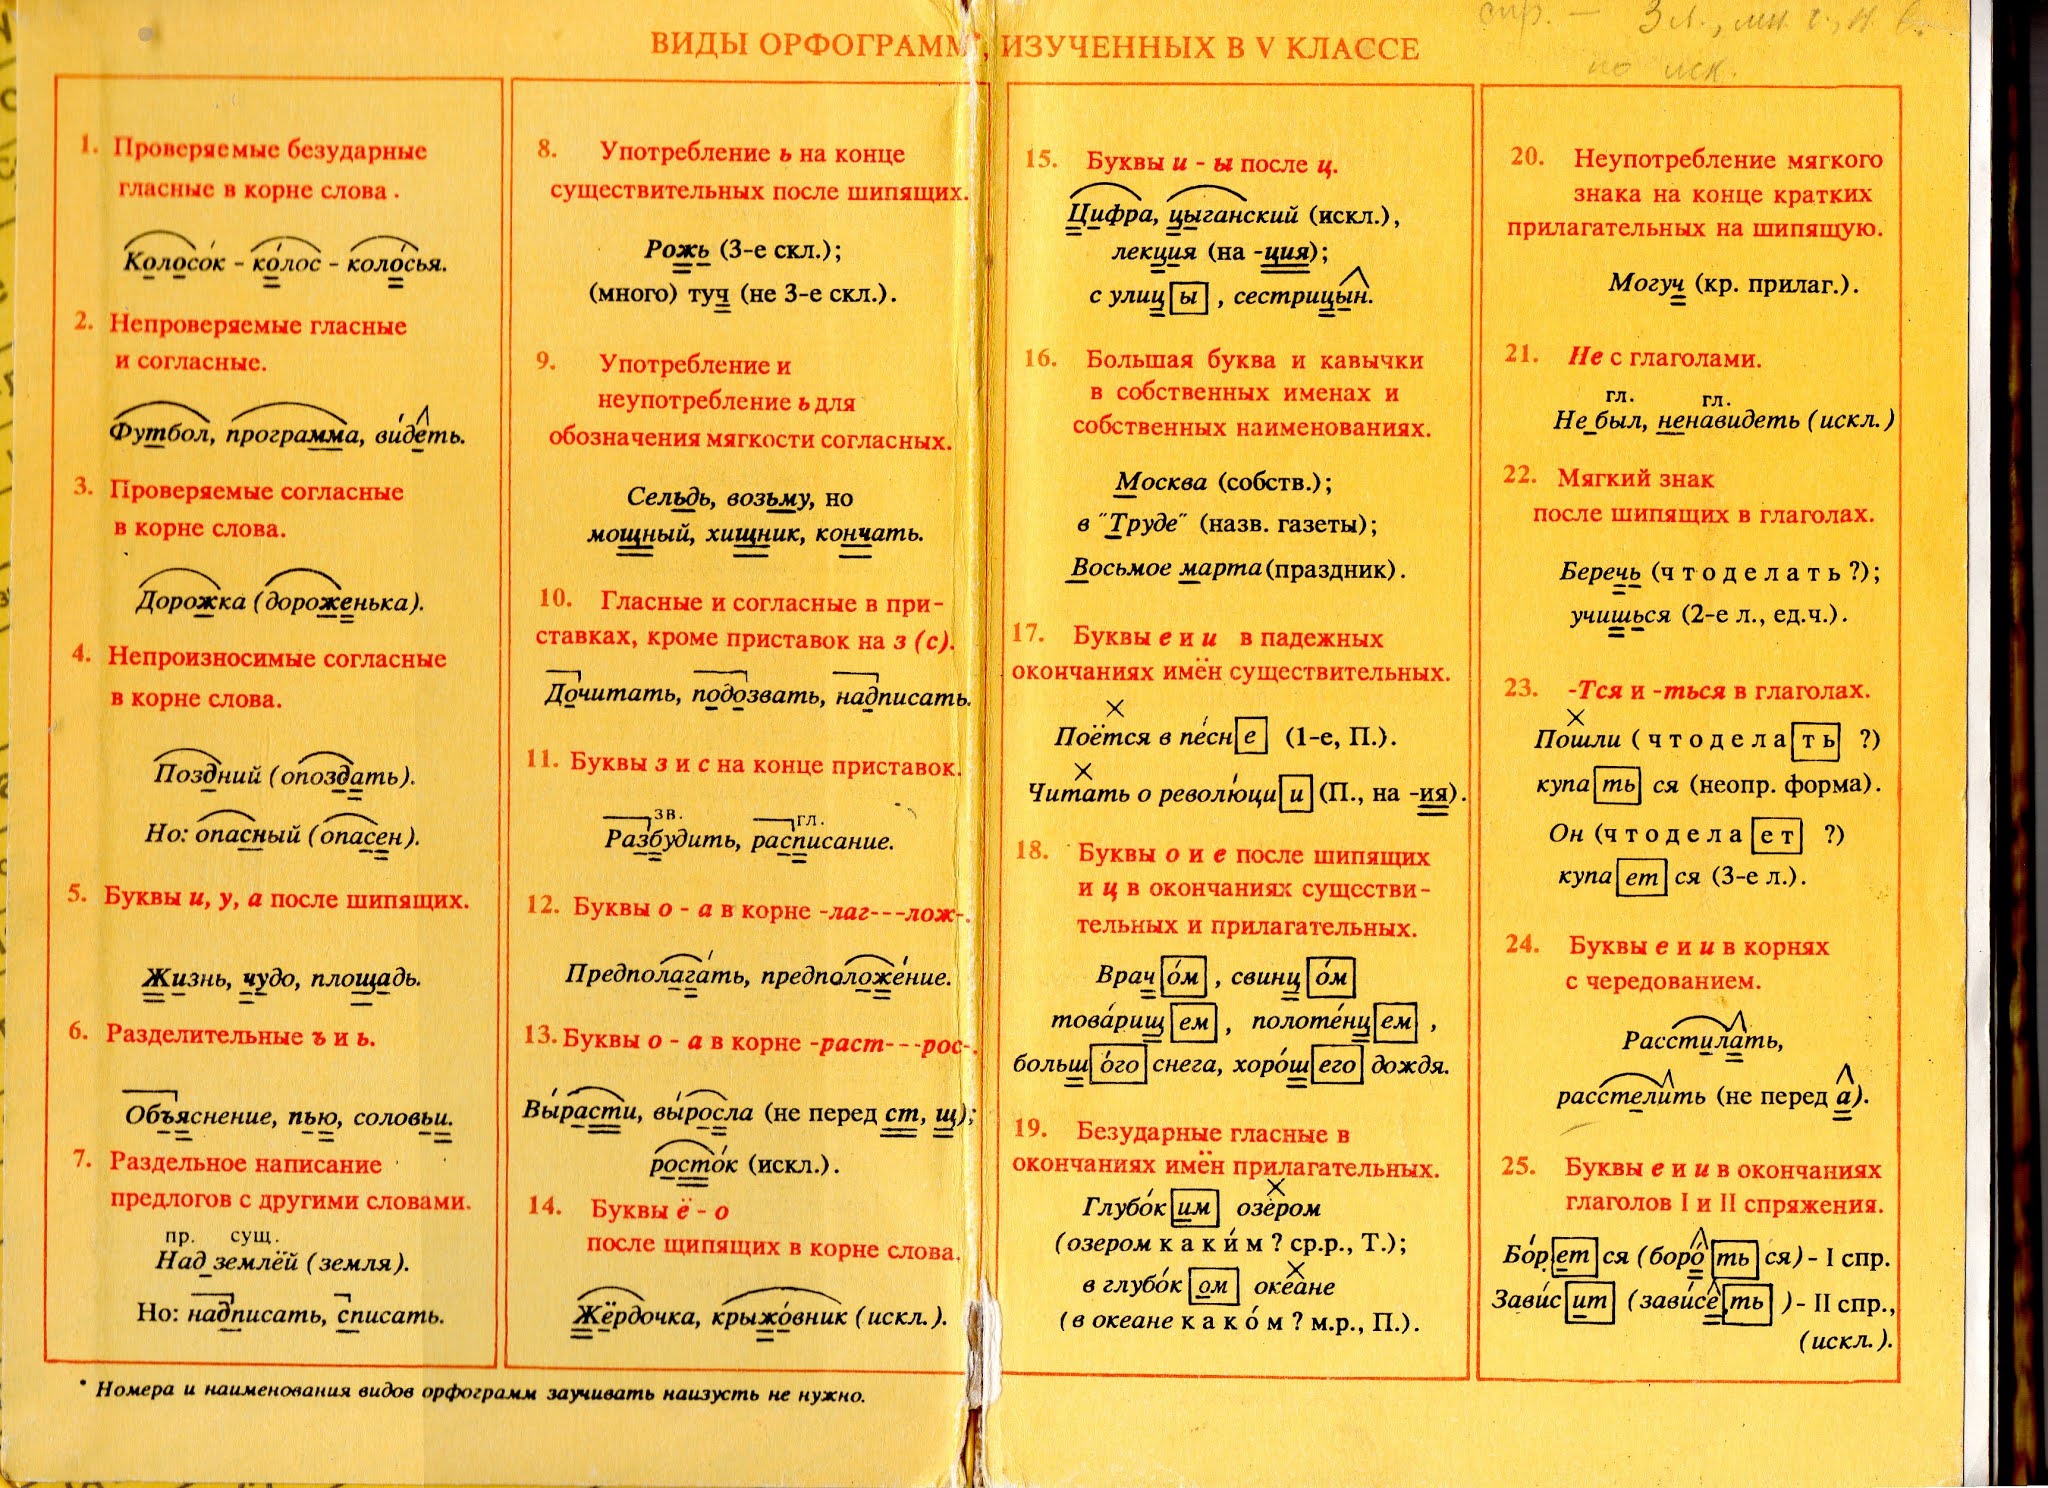 спр. — 3 л., мн. ч., н. в.
по иск.
ВИДЫ ОРФОГРАММ*, ИЗУЧЕННЫХ В V КЛАССЕ
1. Проверяемые безударные
гласные в корне слова.
Колосо́к - ко́лос - коло́сья.
2. Непроверяемые гласные
и согласные.
Футбол, программа, ви́деть.
3. Проверяемые согласные
в корне слова.
Дорожка (дороженька).
4. Непроизносимые согласные
в корне слова.
Поздний (опоздать).
Но: опасный (опасен).
5. Буквы и, у, а после шипящих.
Жизнь, чудо, площадь.
6. Разделительные ъ и ь.
Объяснение, пью, соловьи.
7. Раздельное написание
предлогов с другими словами.
пр. сущ.
Над землёй (земля).
Но: надписать, списать.
8. Употребление ь на конце
существительных после шипящих.
Рожь (3-е скл.);
(много) туч (не 3-е скл.).
9. Употребление и
неупотребление ь для
обозначения мягкости согласных.
Сельдь, возьму, но
мощный, хищник, кончать.
10. Гласные и согласные в при-
ставках, кроме приставок на з (с).
Дочитать, подозвать, надписать.
11. Буквы з и с на конце приставок.
зв. гл.
Разбудить, расписание.
12. Буквы о - а в корне -лаг---лож-.
Предполага́ть, предположе́ние.
13. Буквы о - а в корне -раст---рос-.
Вы́расти, вы́росла (не перед ст, щ);
росто́к (искл.).
14. Буквы ё - о
после щипящих в корне слова.
Жёрдочка, крыжо́вник (искл.).
15. Буквы и - ы после ц.
Цифра, цыганский (искл.),
лекция (на -ция);
с улицы, сестрицын.
16. Большая буква и кавычки
в собственных именах и
собственных наименованиях.
Москва (собств.);
в "Труде" (назв. газеты);
Восьмое марта (праздник).
17. Буквы е и и в падежных
окончаниях имён существительных.
Поётся в пе́сне (1-е, П.).
Читать о револю́ции (П., на -ия).
18. Буквы о и е после шипящих
и ц в окончаниях существи-
тельных и прилагательных.
Врачо́м, свинцо́м
това́рищем, полоте́нцем,
большо́го снега, хоро́шего дождя.
19. Безударные гласные в
окончаниях имён прилагательных.
Глубо́ким озером
(озером каки́м? ср.р., Т.);
в глубо́ком океане
(в океане како́м? м.р., П.).
20. Неупотребление мягкого
знака на конце кратких
прилагательных на шипящую.
Могуч (кр. прилаг.).
21. Не с глаголами.
гл. гл.
Не был, ненавидеть (искл.)
22. Мягкий знак
после шипящих в глаголах.
Беречь (что делать?);
учишься (2-е л., ед.ч.).
23. -Тся и -ться в глаголах.
Пошли (что делать?)
купаться (неопр. форма).
Он (что делает?)
купается (3-е л.).
24. Буквы е и и в корнях
с чередованием.
Расстилать,
расстелить (не перед а).
25. Буквы е и и в окончаниях
глаголов I и II спряжения.
Бо́рется (боро́ться) - I спр.
Зави́сит (зави́сеть) - II спр.,
(искл.).
* Номера и наименования видов орфограмм заучивать наизусть не нужно.